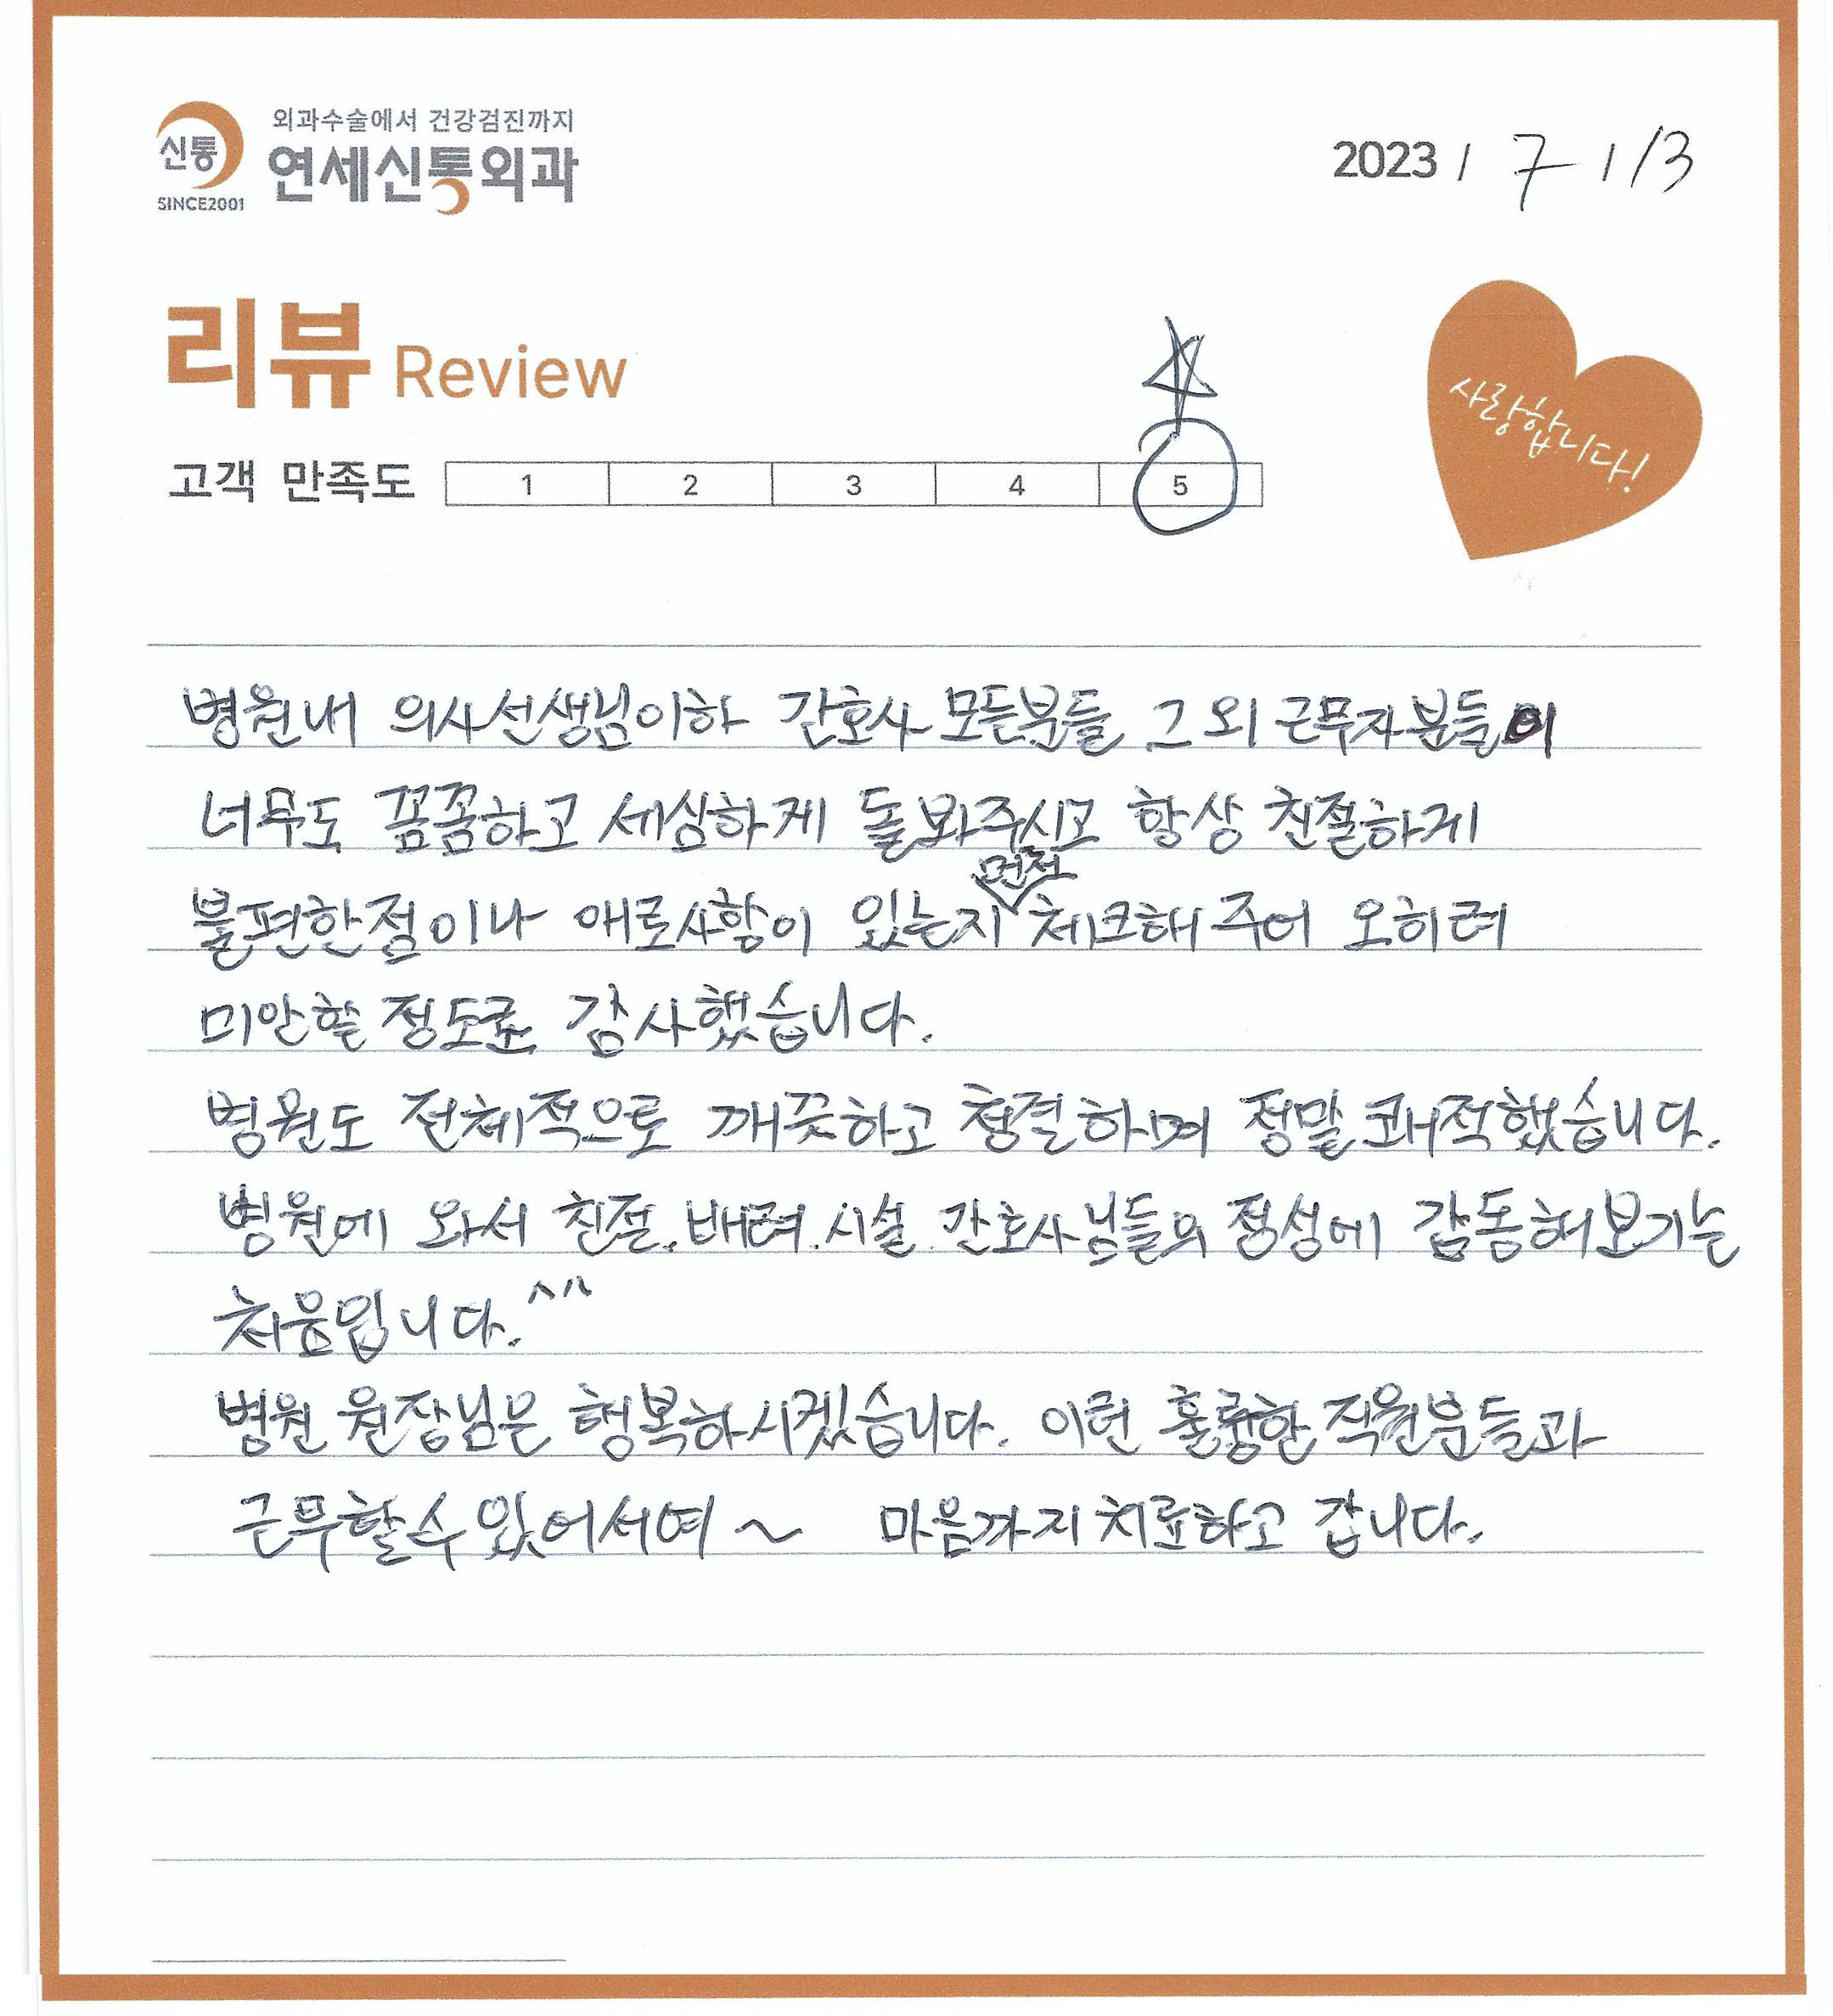 외과수술에서 건강검진까지
신통 연세신통외과
SINCE2001
2023 / 7 / 13
리뷰 Review
사랑합니다!
고객 만족도 1 2 3 4 5
병원내 의사선생님이하 간호사 모든분들 그 외 근무자분들이
너무도 꼼꼼하고 세심하게 돌봐주시고 항상 친절하게
불편한점이나 애로사항이 있는지 먼저 체크해 주어 오히려
미안할 정도로 감사했습니다.
병원도 전체적으로 깨끗하고 청결하며 정말 쾌적했습니다.
병원에 와서 친절.배려.시설.간호사님들의 정성에 감동해보기는
처음입니다.^^
병원 원장님은 행복하시겠습니다. 이런 훌륭한 직원분들과
근무할수 있어서여~ 마음까지 치료하고 갑니다.